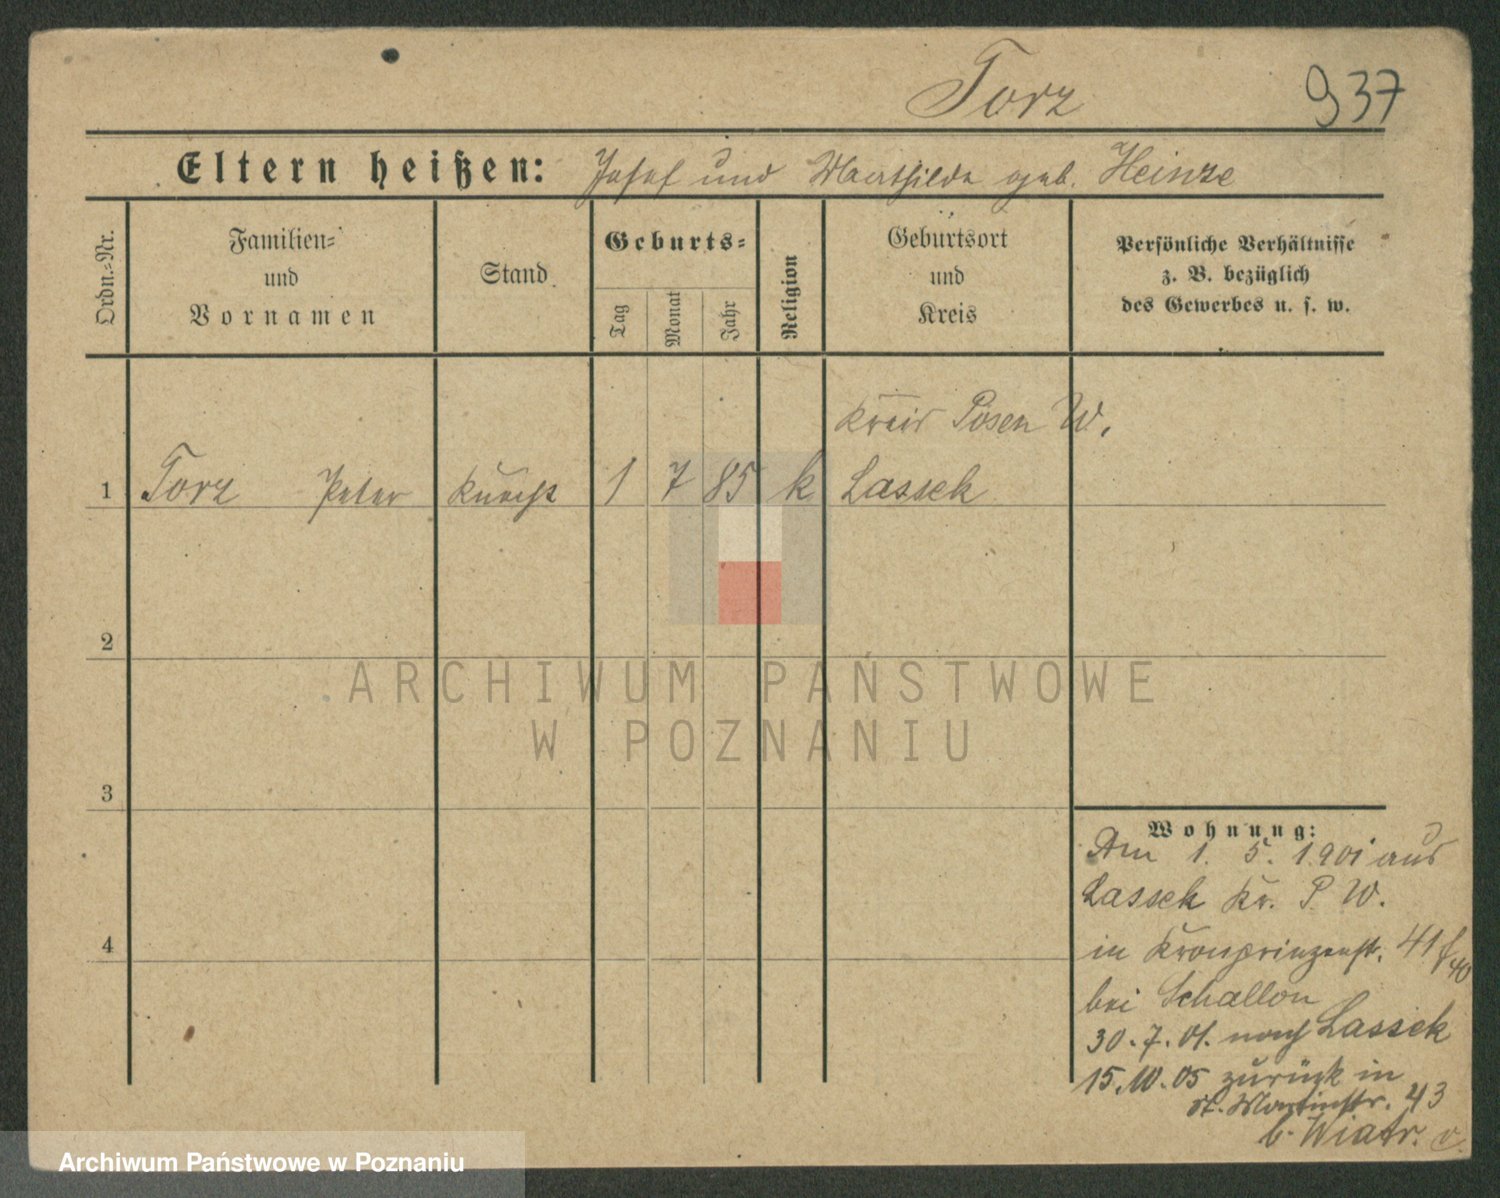 Torz
937
Eltern heißen: Josef und Mathilde geb. Heinze
Ordn.-Nr.
Familien-
und
Vornamen
Stand
Geburts-
Tag
Monat
Jahr
Religion
Geburtsort
und
Kreis
Persönliche Verhältnisse
z. B. bezüglich
des Gewerbes u. s. w.
Kreis Posen W.
1 Torz Peter Knecht 1 7 85 k Lassek
2
3
4
Wohnung:
Am 1. 5. 1901 aus
Lassek Kr. P. W.
in Kronprinzenstr. 41
bei Schallon
30.7.01. nach Lassek
15.10.05 zurück in
St. Martinstr. 43
b. Wiatr.
ARCHIWUM PAŃSTWOWE
W POZNANIU
Archiwum Państwowe w Poznaniu